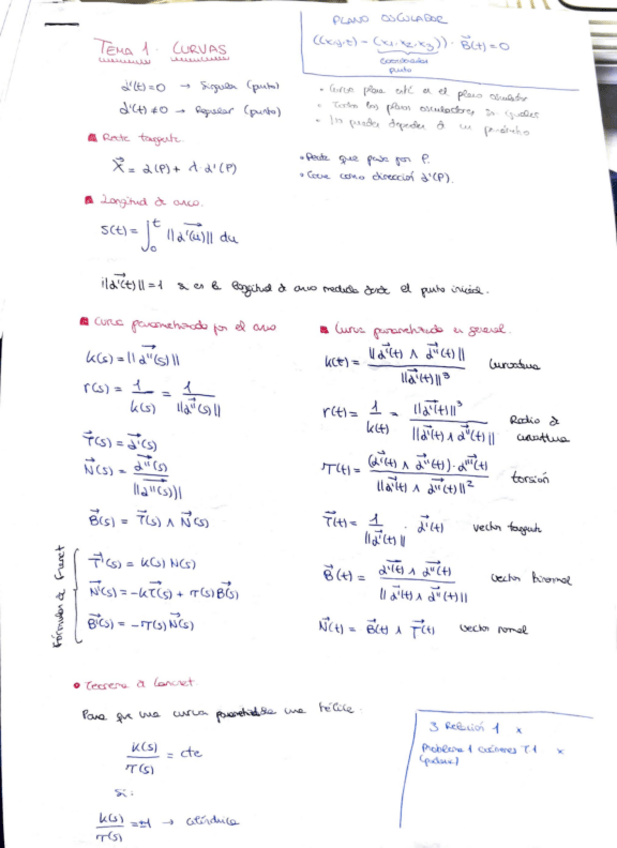 PLANO OSCULADOR
((x,y,z) - (x₁, x₂, x₃)) · B⃗(t) = 0
coordenadas
punto
TEMA 1. CURVAS
α'(t) = 0 → Singular (punto)
α'(t) ≠ 0 → Regular (punto)
• Curva plana está en el plano osculador
• Todos los planos osculadores son iguales
• No puede depender de un parámetro
Recta tangente.
X⃗ = α(P) + λ · α'(P)
• Recta que pasa por P.
• Tiene como dirección α'(P).
Longitud de arco.
S(t) = ∫₀ᵗ ||α'(u)|| du
||α'(t)|| = 1 si es la longitud de arco medida desde el punto inicial.
Curva parametrizada por el arco
k(s) = ||α''(s)||
r(s) = 1/k(s) = 1/||α''(s)||
T⃗(s) = α'(s)
N⃗(s) = α''(s)/||α''(s)||
B⃗(s) = T⃗(s) ∧ N⃗(s)
Fórmulas de Frenet
T⃗'(s) = k(s) N(s)
N⃗'(s) = -kT⃗(s) + τ(s)B⃗(s)
B⃗'(s) = -τ(s)N⃗(s)
Curva parametrizada en general.
k(t) = ||α'(t) ∧ α''(t)|| / ||α'(t)||³ curvatura
r(t) = 1/k(t) = ||α'(t)||³ / ||α'(t) ∧ α''(t)|| Radio de curvatura
τ(t) = (α'(t) ∧ α''(t)) · α'''(t) / ||α'(t) ∧ α''(t)||² torsión
T⃗(t) = 1/||α'(t)|| · α'(t) vector tangente
B⃗(t) = α'(t) ∧ α''(t) / ||α'(t) ∧ α''(t)|| vector binormal
N⃗(t) = B⃗(t) ∧ T⃗(t) vector normal
Teorema de Lancret.
Para que una curva sea una hélice.
k(s)/τ(s) = cte
Si:
k(s)/τ(s) = ±1 →
3 Relación 1 x
Problema 1 exámenes T1 x